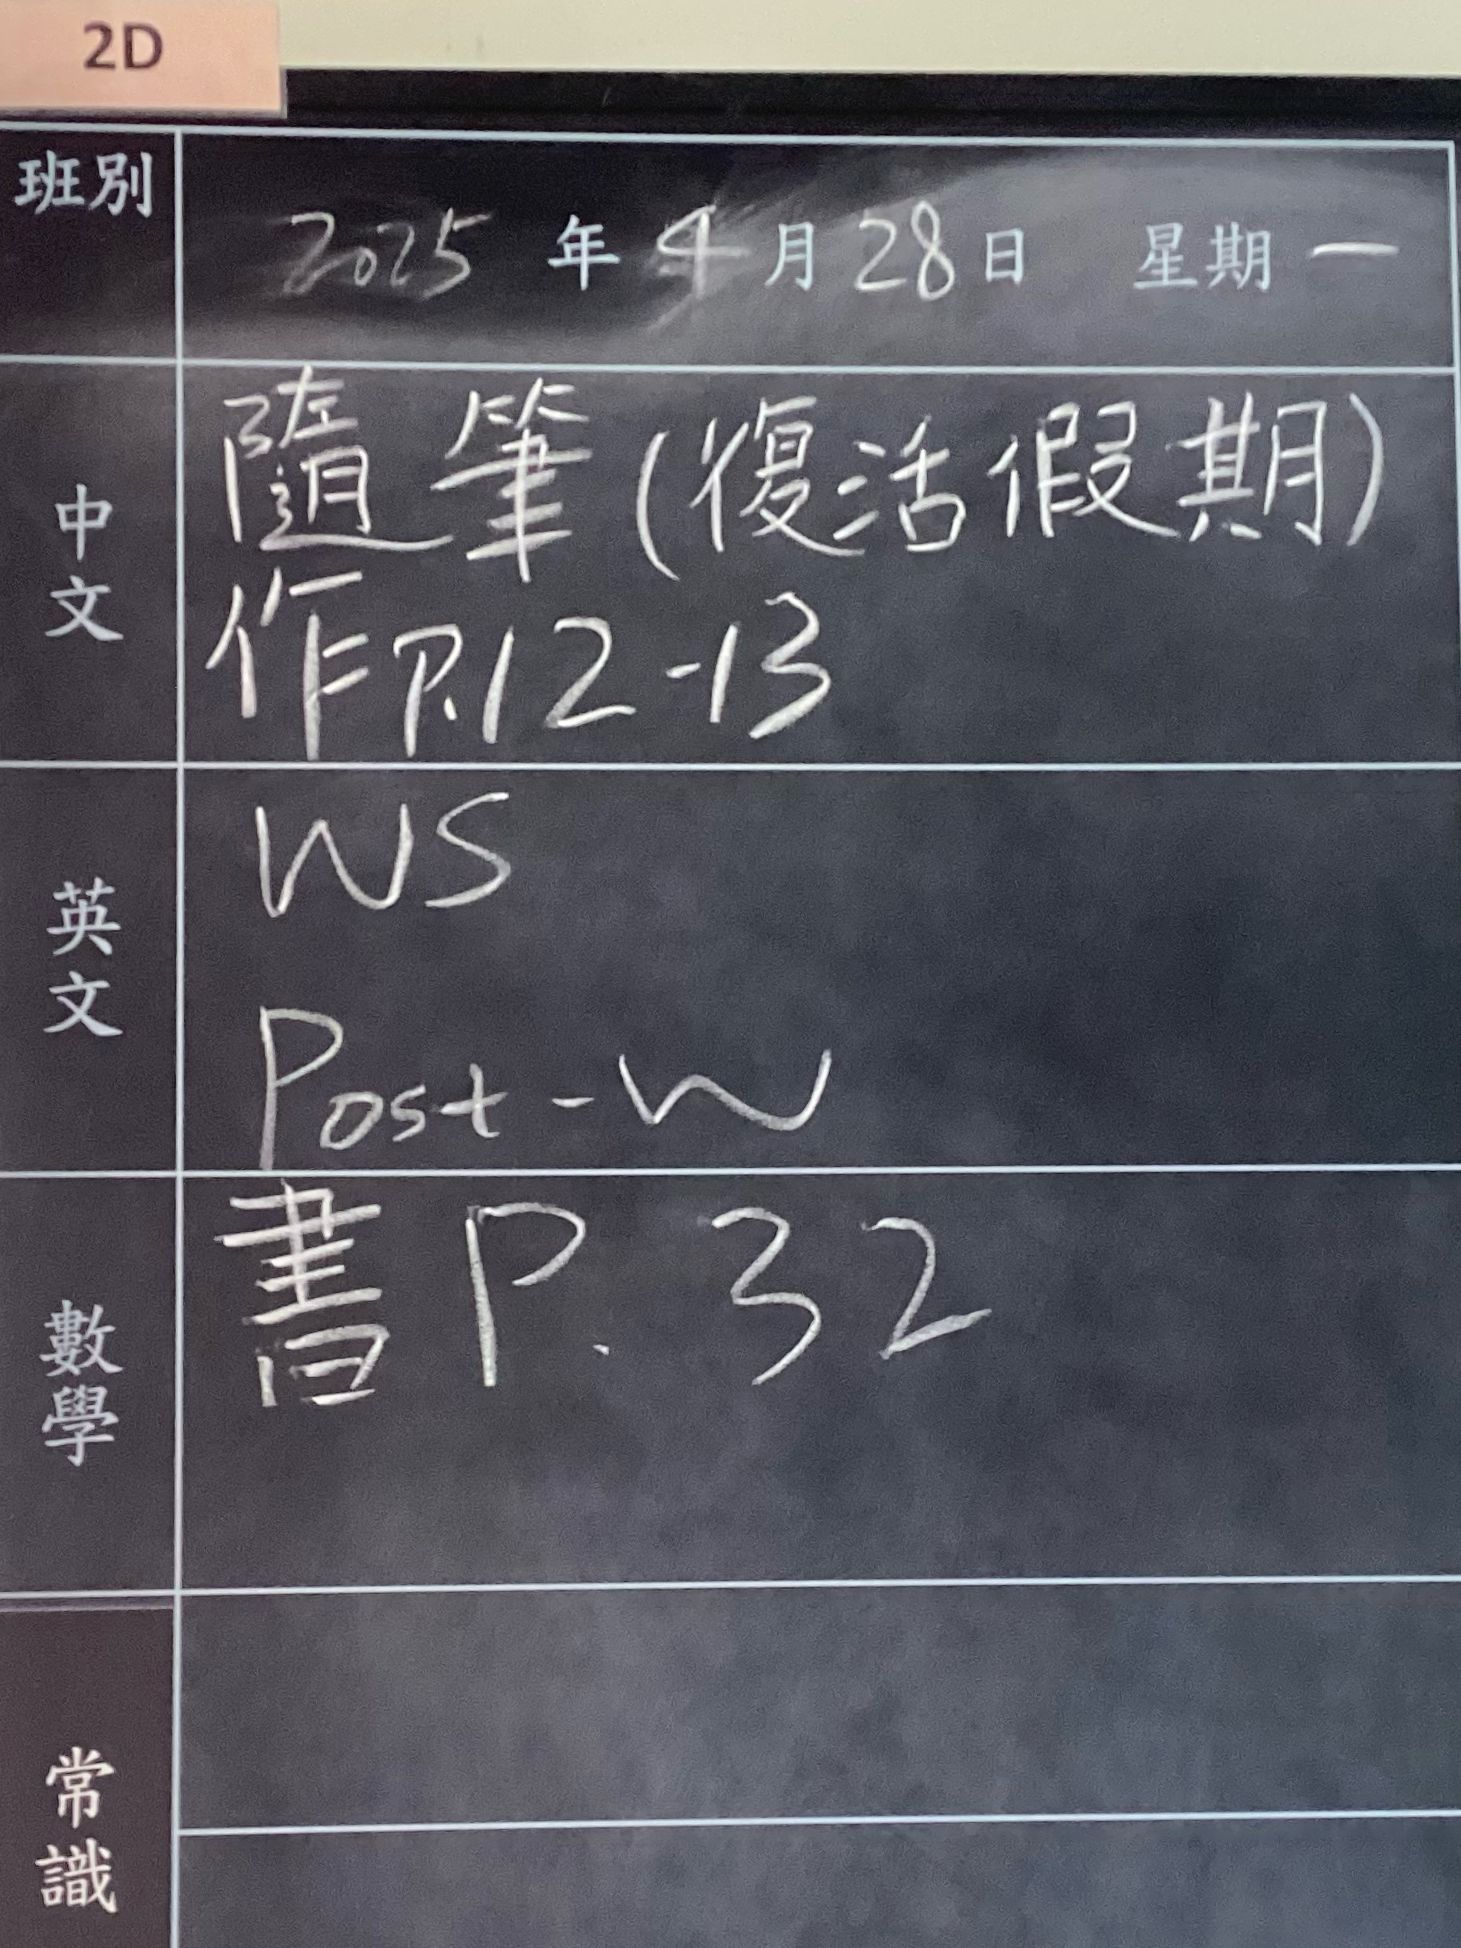 2D
班別
2025 年 4 月 28 日 星期 一
中文
隨筆(復活假期)
作P.12-13
英文
WS
Post-W
數學
書 P. 32
常識